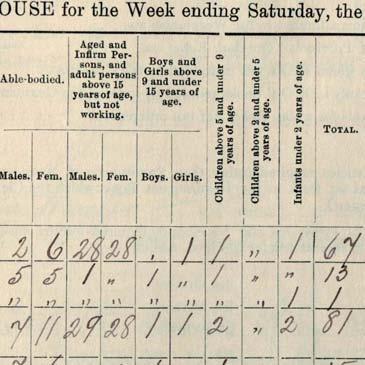 OUSE for the Week ending Saturday, the
Able-bodied. Aged and Infirm Per- sons, and adult persons above 15 years of age, but not working. Boys and Girls above 9 and under 15 years of age. Children above 5 and under 9 years of age. Children above 2 and under 5 years of age. Infants under 2 years of age. TOTAL.
Males. Fem. Males. Fem. Boys. Girls.
2 6 28 28 . 1 1 " 1 67
5 5 1 " 1 " 1 " " 13
" " " " " " " " 1 1
7 11 29 28 1 1 2 " 2 81